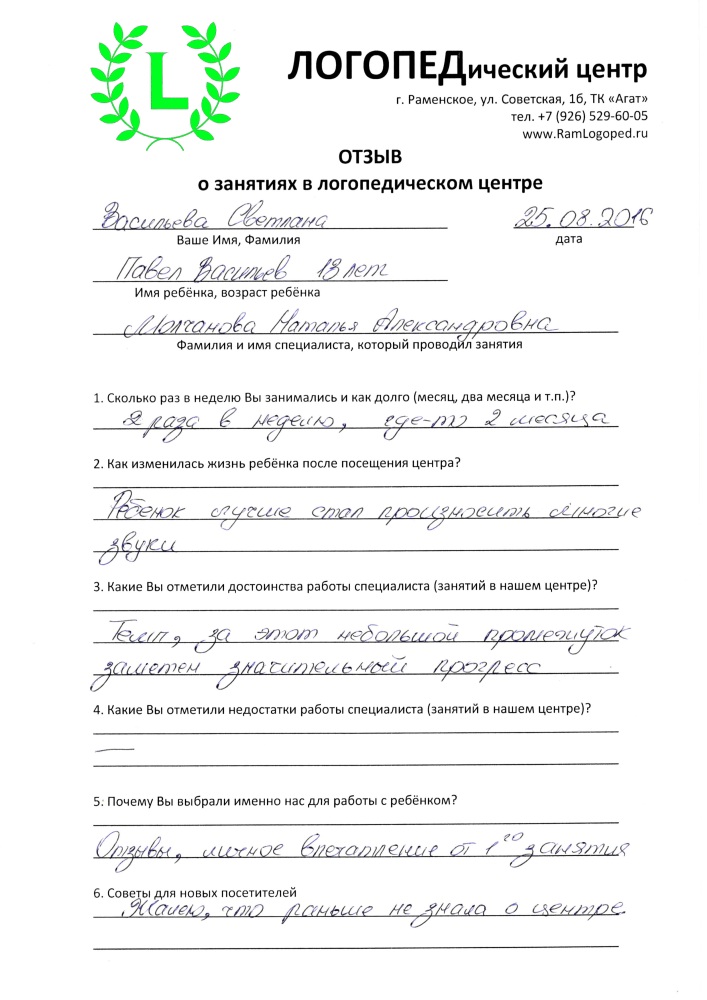 L
ЛОГОПЕДический центр
г. Раменское, ул. Советская, 1б, ТК «Агат»
тел. +7 (926) 529-60-05
www.RamLogoped.ru
ОТЗЫВ
о занятиях в логопедическом центре
Васильева Светлана 25.08.2016
Ваше Имя, Фамилия дата
Павел Васильев 13 лет
Имя ребёнка, возраст ребёнка
Молчанова Наталья Александровна
Фамилия и имя специалиста, который проводил занятия
1. Сколько раз в неделю Вы занимались и как долго (месяц, два месяца и т.п.)?
2 раза в неделю, где-то 2 месяца
2. Как изменилась жизнь ребёнка после посещения центра?
Ребенок лучше стал произносить многие
звуки
3. Какие Вы отметили достоинства работы специалиста (занятий в нашем центре)?
Темп, за этот небольшой промежуток
заметен значительный прогресс
4. Какие Вы отметили недостатки работы специалиста (занятий в нашем центре)?
—
5. Почему Вы выбрали именно нас для работы с ребёнком?
Отзывы, личное впечатление от 1го занятия
6. Советы для новых посетителей
Жалею, что раньше не знала о центре.